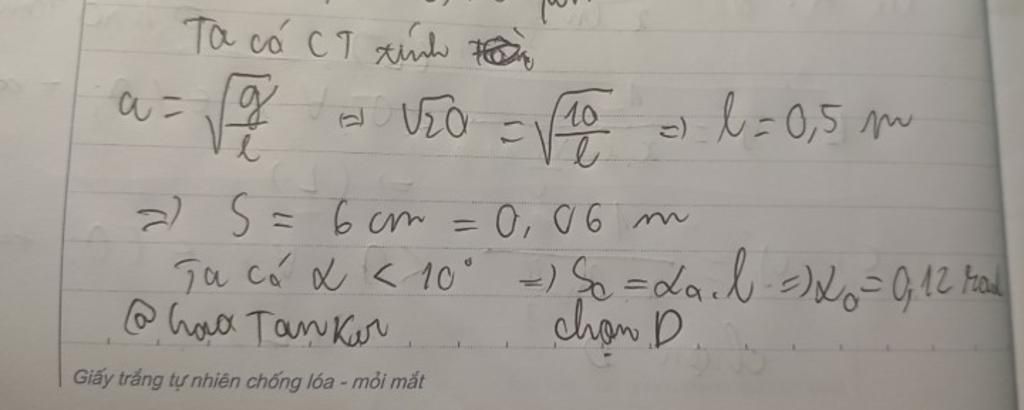 Ta có CT tính
a = √(g/l) => √20 = √(10/l) => l = 0,5 m
=> S = 6 cm = 0,06 m
Ta có α < 10° => S₀ = α₀.l => α₀ = 0,12 rad
chọn D
Giấy trắng tự nhiên chống lóa - mỏi mắt